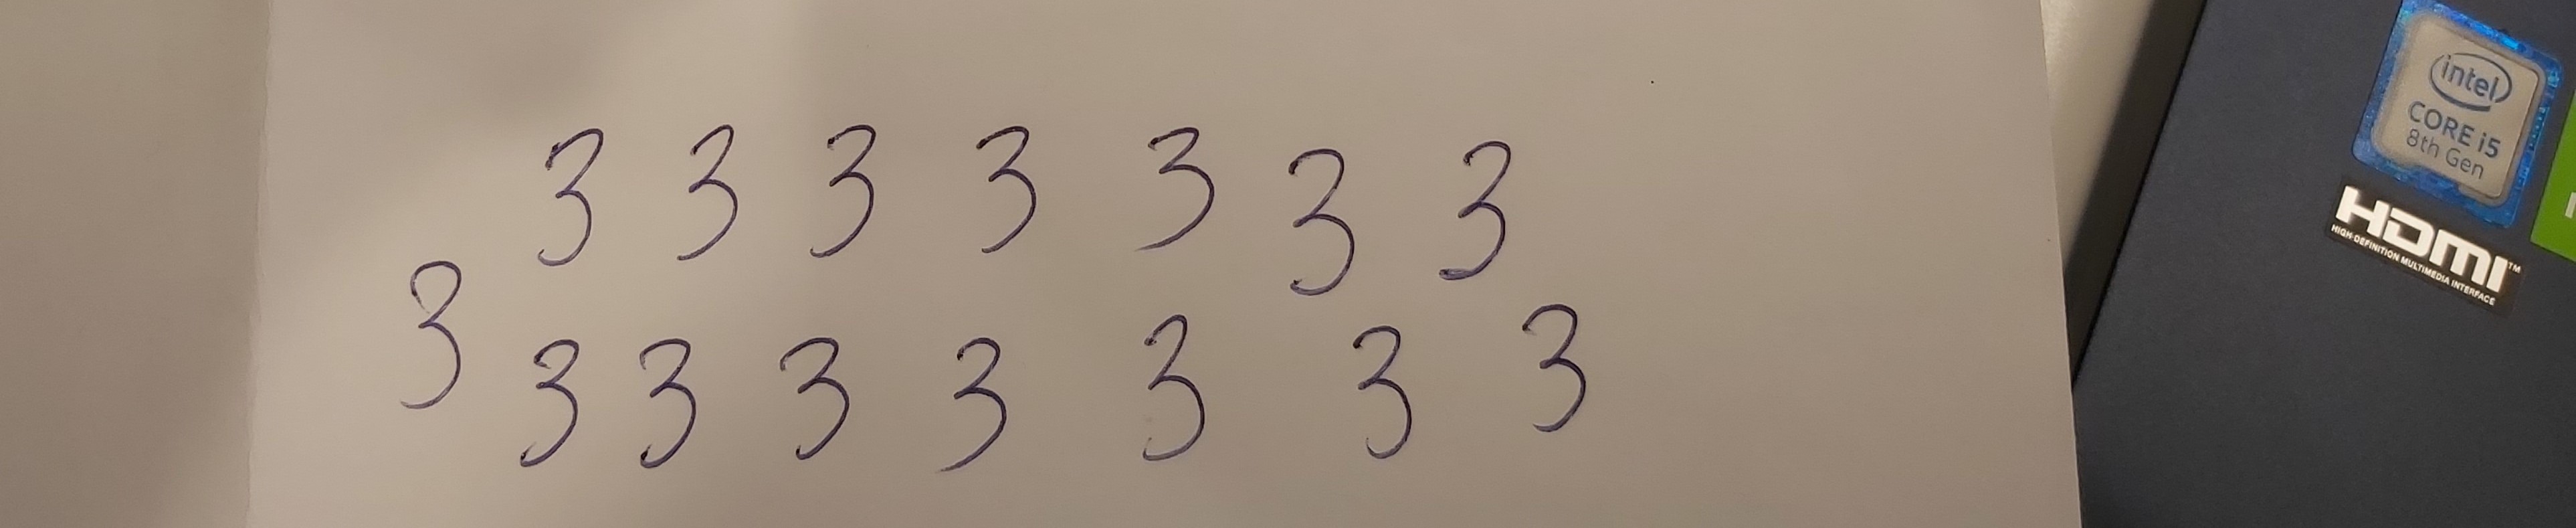 3 3 3 3 3 3 3
3 3 3 3 3 3 3 3
intel
CORE i5
8th Gen
HDMI™
HIGH-DEFINITION MULTIMEDIA INTERFACE